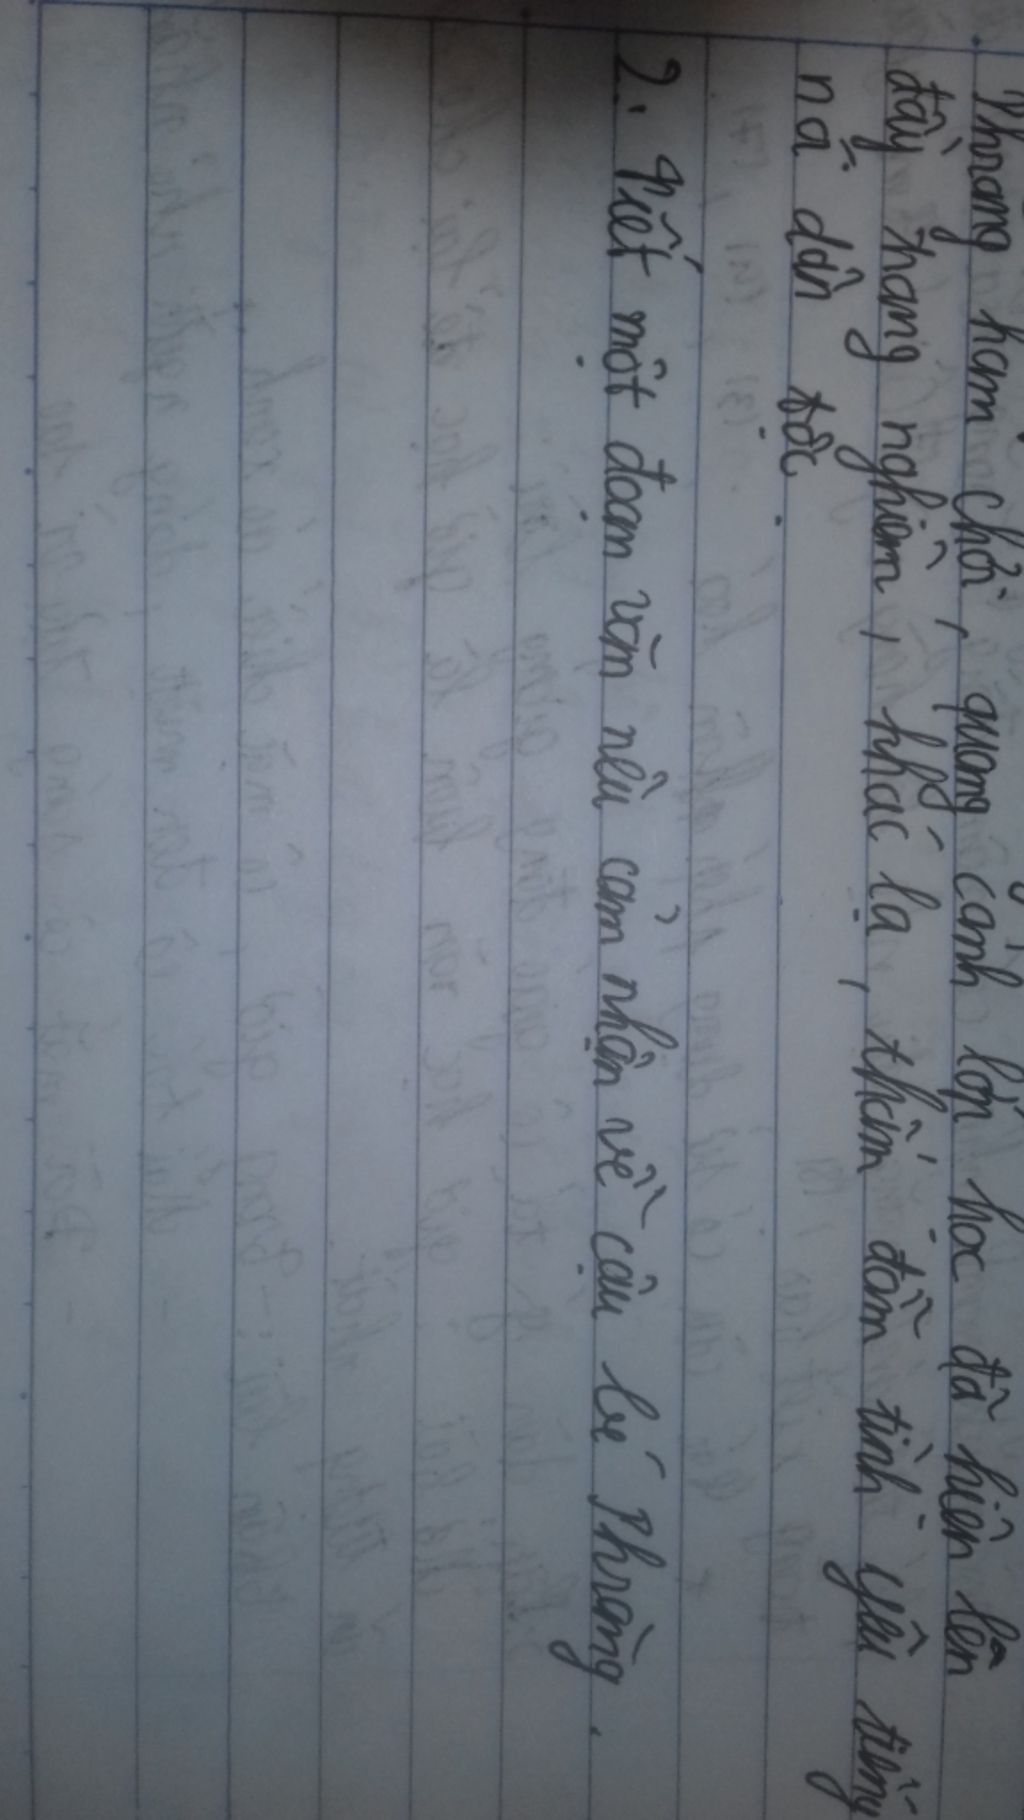 Phrăng ham chơi, quang cảnh lớp học đã hiện lên
đầy trang nghiêm, khác lạ, thấm đẫm tình yêu tiếng
nói dân tộc
2. Viết một đoạn văn nêu cảm nhận về cậu bé Phrăng.